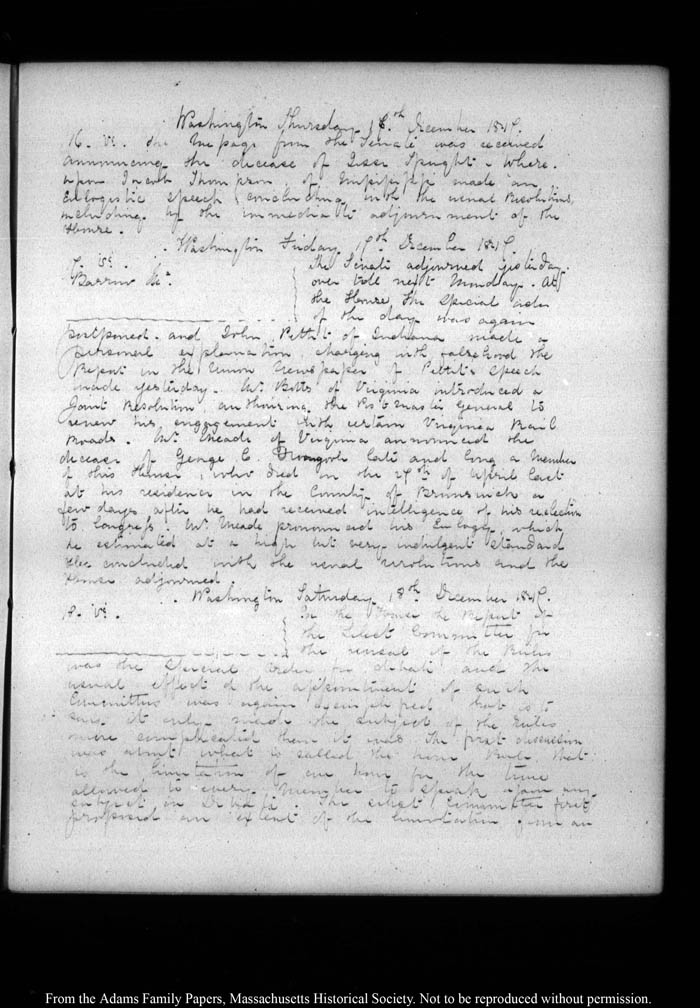 Washington Thursday 16.th December 1847.
16. VI. the Message from the Senate was received
announcing the decease of Jesse Speight. Where-
upon Jacob Thompson of Mississippi made an
Eulogistic Speech concluding with the usual Resolutions,
including of the immediate adjournment of the
House.
Washington Friday 17th December 1847.
VI.
Barrow Mr.
The Senate adjourned yesterday
over till next Monday. At
the House, the special order
of the day was again
postponed. and John Pettit of Indiana made a
personal explanation, charging with falsehood the
Report in the Union Newspaper of Pettit's Speech
made yesterday. Mr. Botts of Virginia introduced a
Joint Resolution, authorising the Postmaster General to
renew his engagement with certain Virginia Rail
Roads. Mr. Meade of Virginia announced the
decease of George C. Dromgoole late and long a Member
of this House, who died on the 27th of April last
at his residence in the County of Brunswick a
few days after he had received intelligence of his reelection
to Congress. Mr. Meade pronounced his Eulogy, which
he estimated at a high but very indulgent Standard
He concluded with the usual resolutions and the
House adjourned.
Washington Saturday 18th. December 1847.
18. VI.
In the House the Report of
the Select Committee for
the revisal of the Rules
was the Special Order for debate and the
usual effect of the appointment of such
Committees was again exemplified that is to
say it only made the subject of the Rules
more complicated than it was. The first discussion
was about what is called the hour Rule that
is the limitation of one hour for the time
allowed to every Member to Speak upon any
subject in Debate. The select Committee first
proposed an extent of the limitation from an
From the Adams Family Papers, Massachusetts Historical Society. Not to be reproduced without permission.